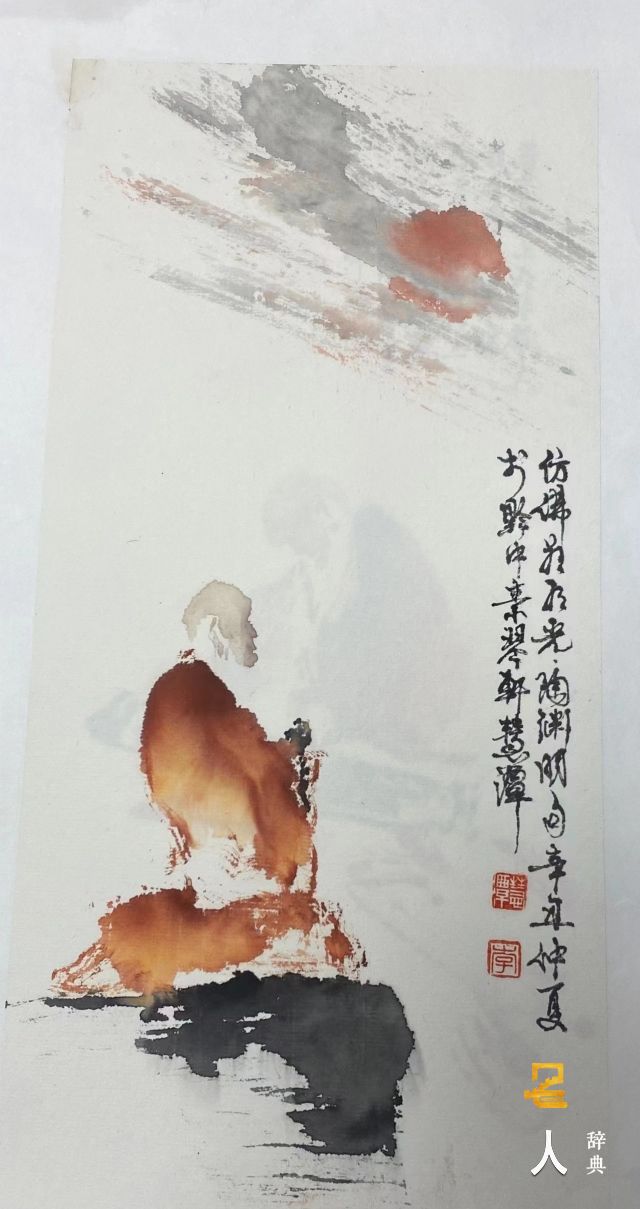 仿佛若有光陶渊明句辛丑仲夏
于黔中素琴轩慧潭
慧潭
李
名人
辞典